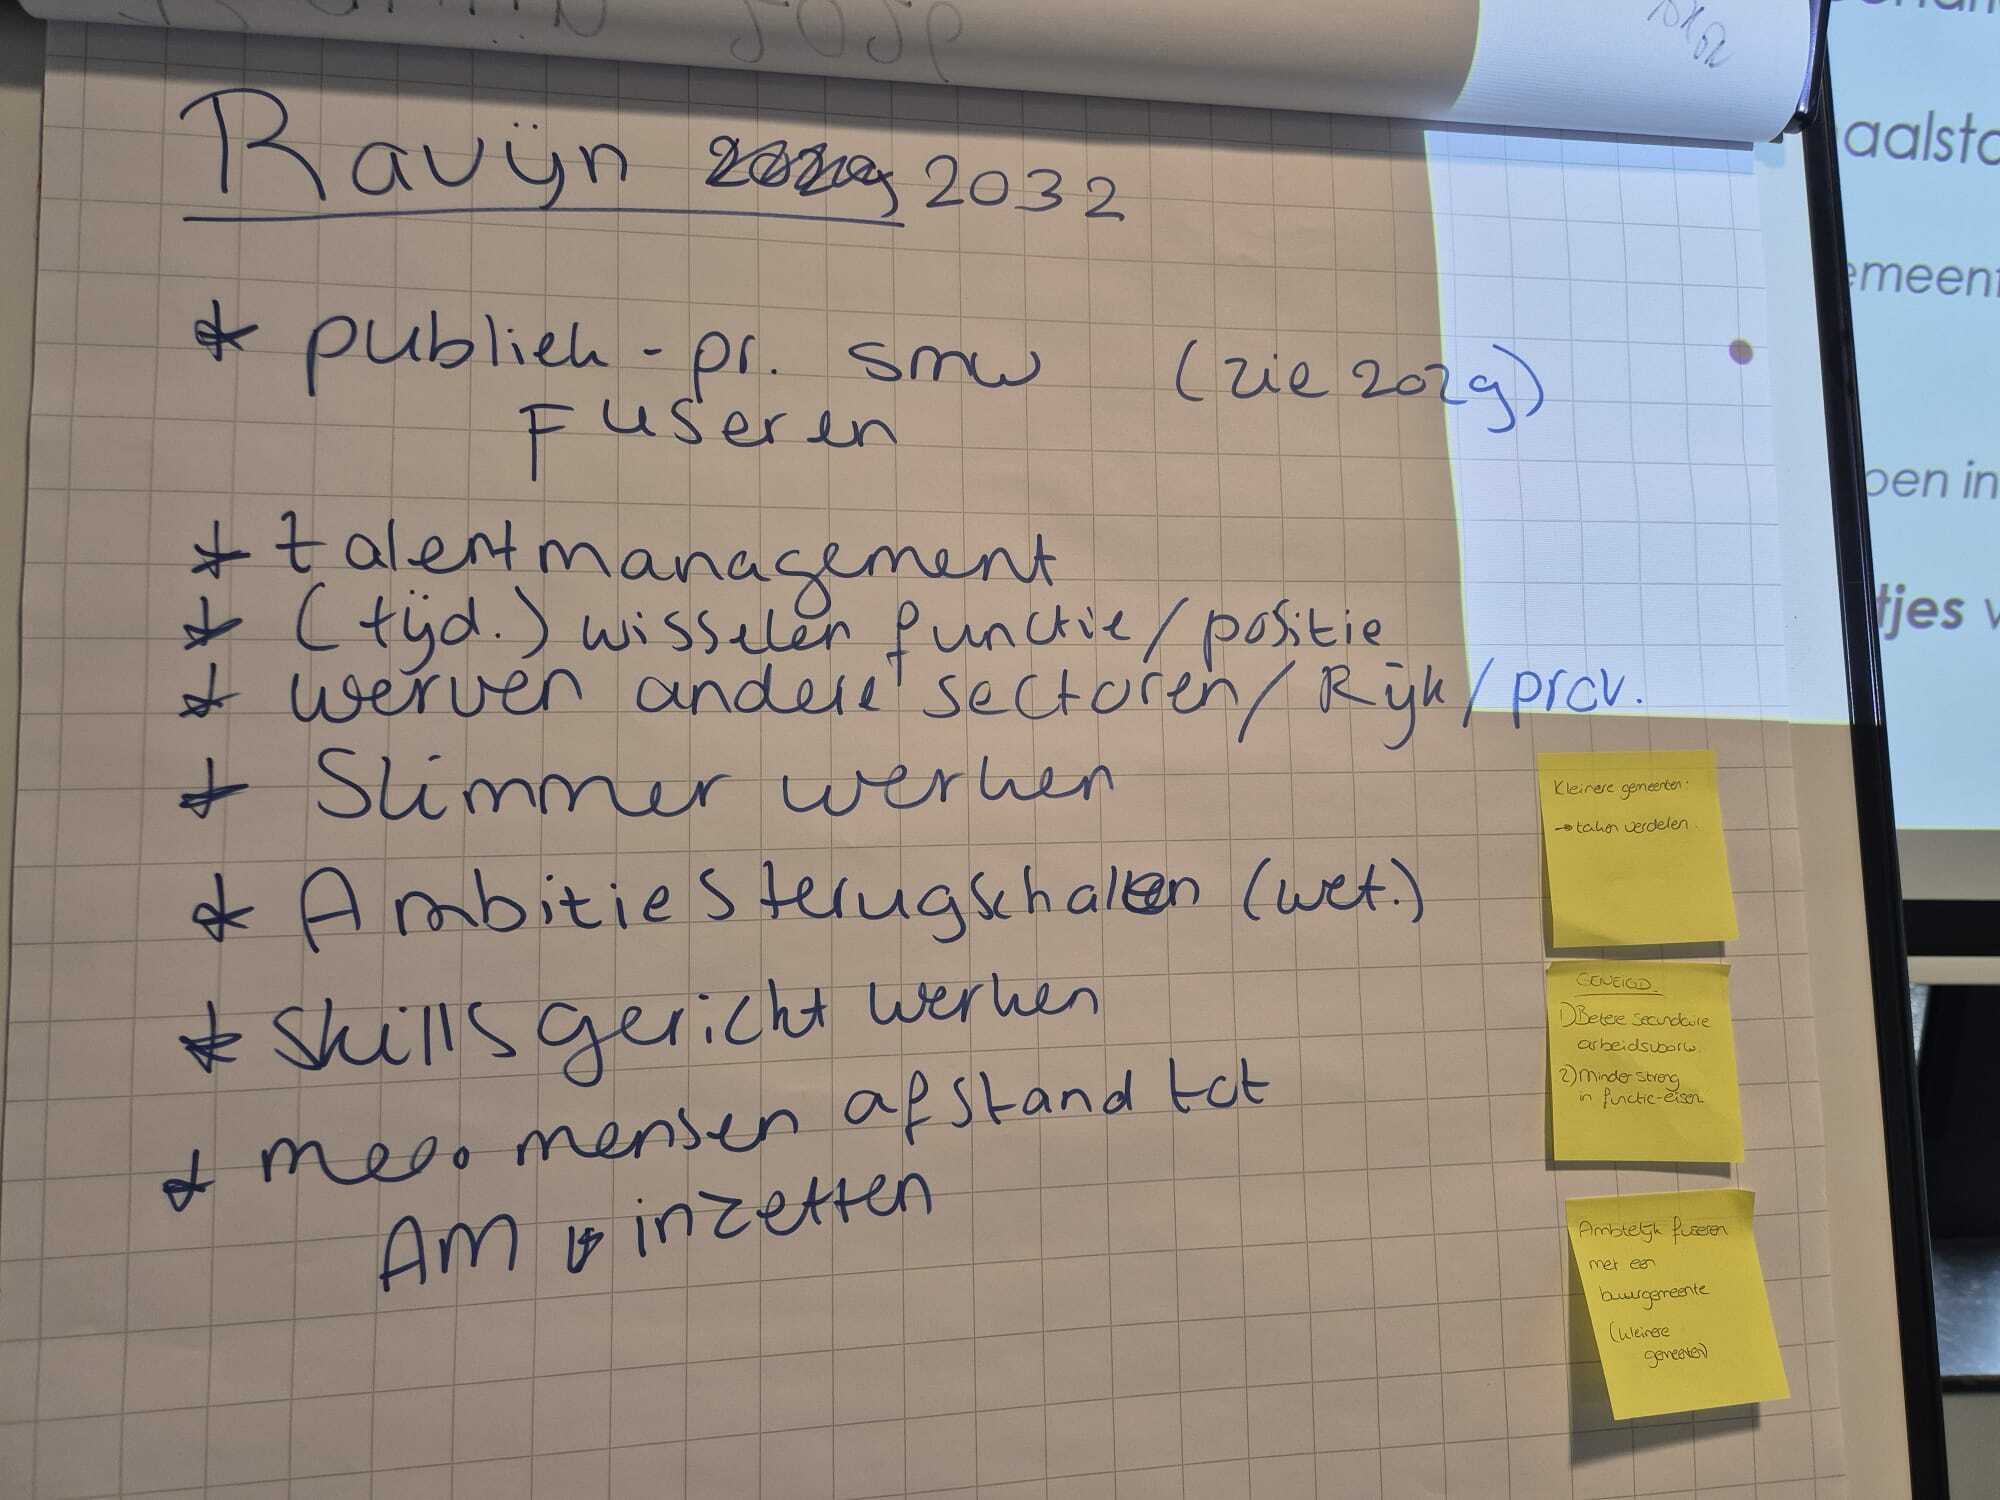 2029
Ravijn 2032
* publiek - pr. smw (zie 2029)
Fuseren
* talentmanagement
* (tijd.) wisselen functie/positie
* werven andere sectoren/Rijk/prov.
* Slimmer werken
* Ambities terugschalen (wet.)
* Skills gericht werken
* mee. mensen afstand tot
AM inzetten
Kleinere gemeenten:
→ taken verdelen.
GENEIGD
1) Betere secundaire
arbeidsvoorw.
2) Minder streng
in functie-eisen
Ambtelijk fuseren
met een
buurgemeente
(kleinere
gemeenten)
aalsta
emeent
pen in
tjes v